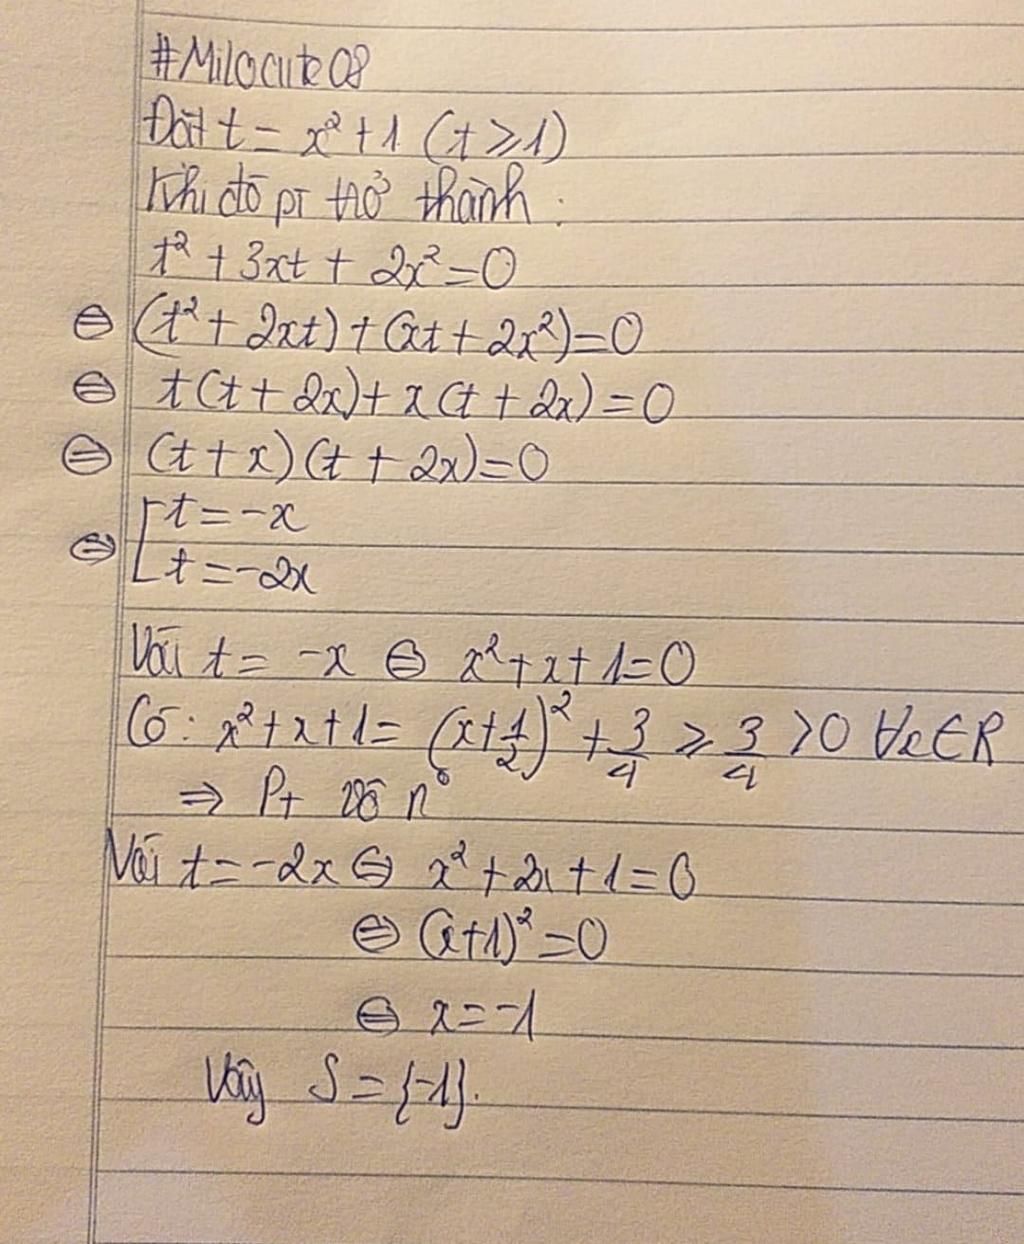 #Milocute08
Đặt t = x² + 1 (t ⩾ 1)
Khi đó pt trở thành :
t² + 3xt + 2x² = 0
⇔ (t² + 2xt) + (xt + 2x²) = 0
⇔ t(t + 2x) + x(t + 2x) = 0
⇔ (t + x)(t + 2x) = 0
⇔ [ t = -x
t = -2x
Với t = -x ⇔ x² + x + 1 = 0
Có : x² + x + 1 = (x + 1/2)² + 3/4 ⩾ 3/4 > 0 ∀x ∈ R
⇒ Pt vô n°
Với t = -2x ⇔ x² + 2x + 1 = 0
⇔ (x + 1)² = 0
⇔ x = -1
Vậy S = {-1}.